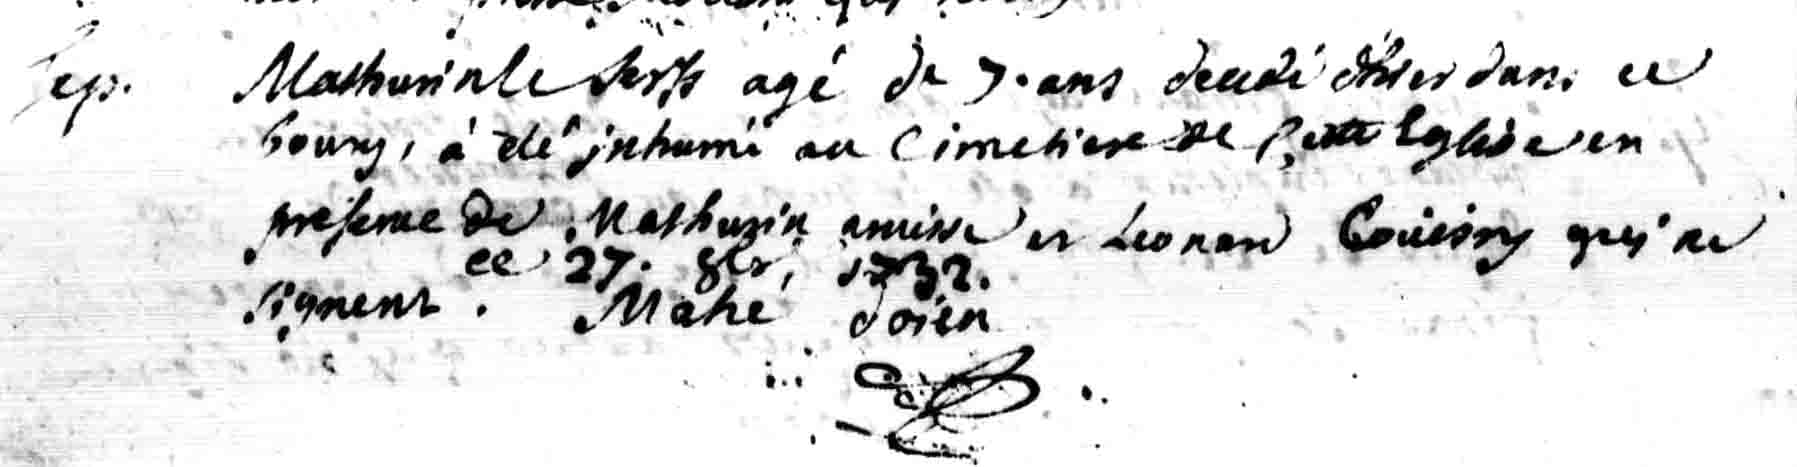 Sep. Mathurin le Serf agé de 7. ans decedé d'hier dans ce
bourg, à été inhumé au Cimetiere de Cette Eglise en
presence de Mathurin et Leonard qui ne
ce 27. 8bre, 1732.
signent. Mahé doien